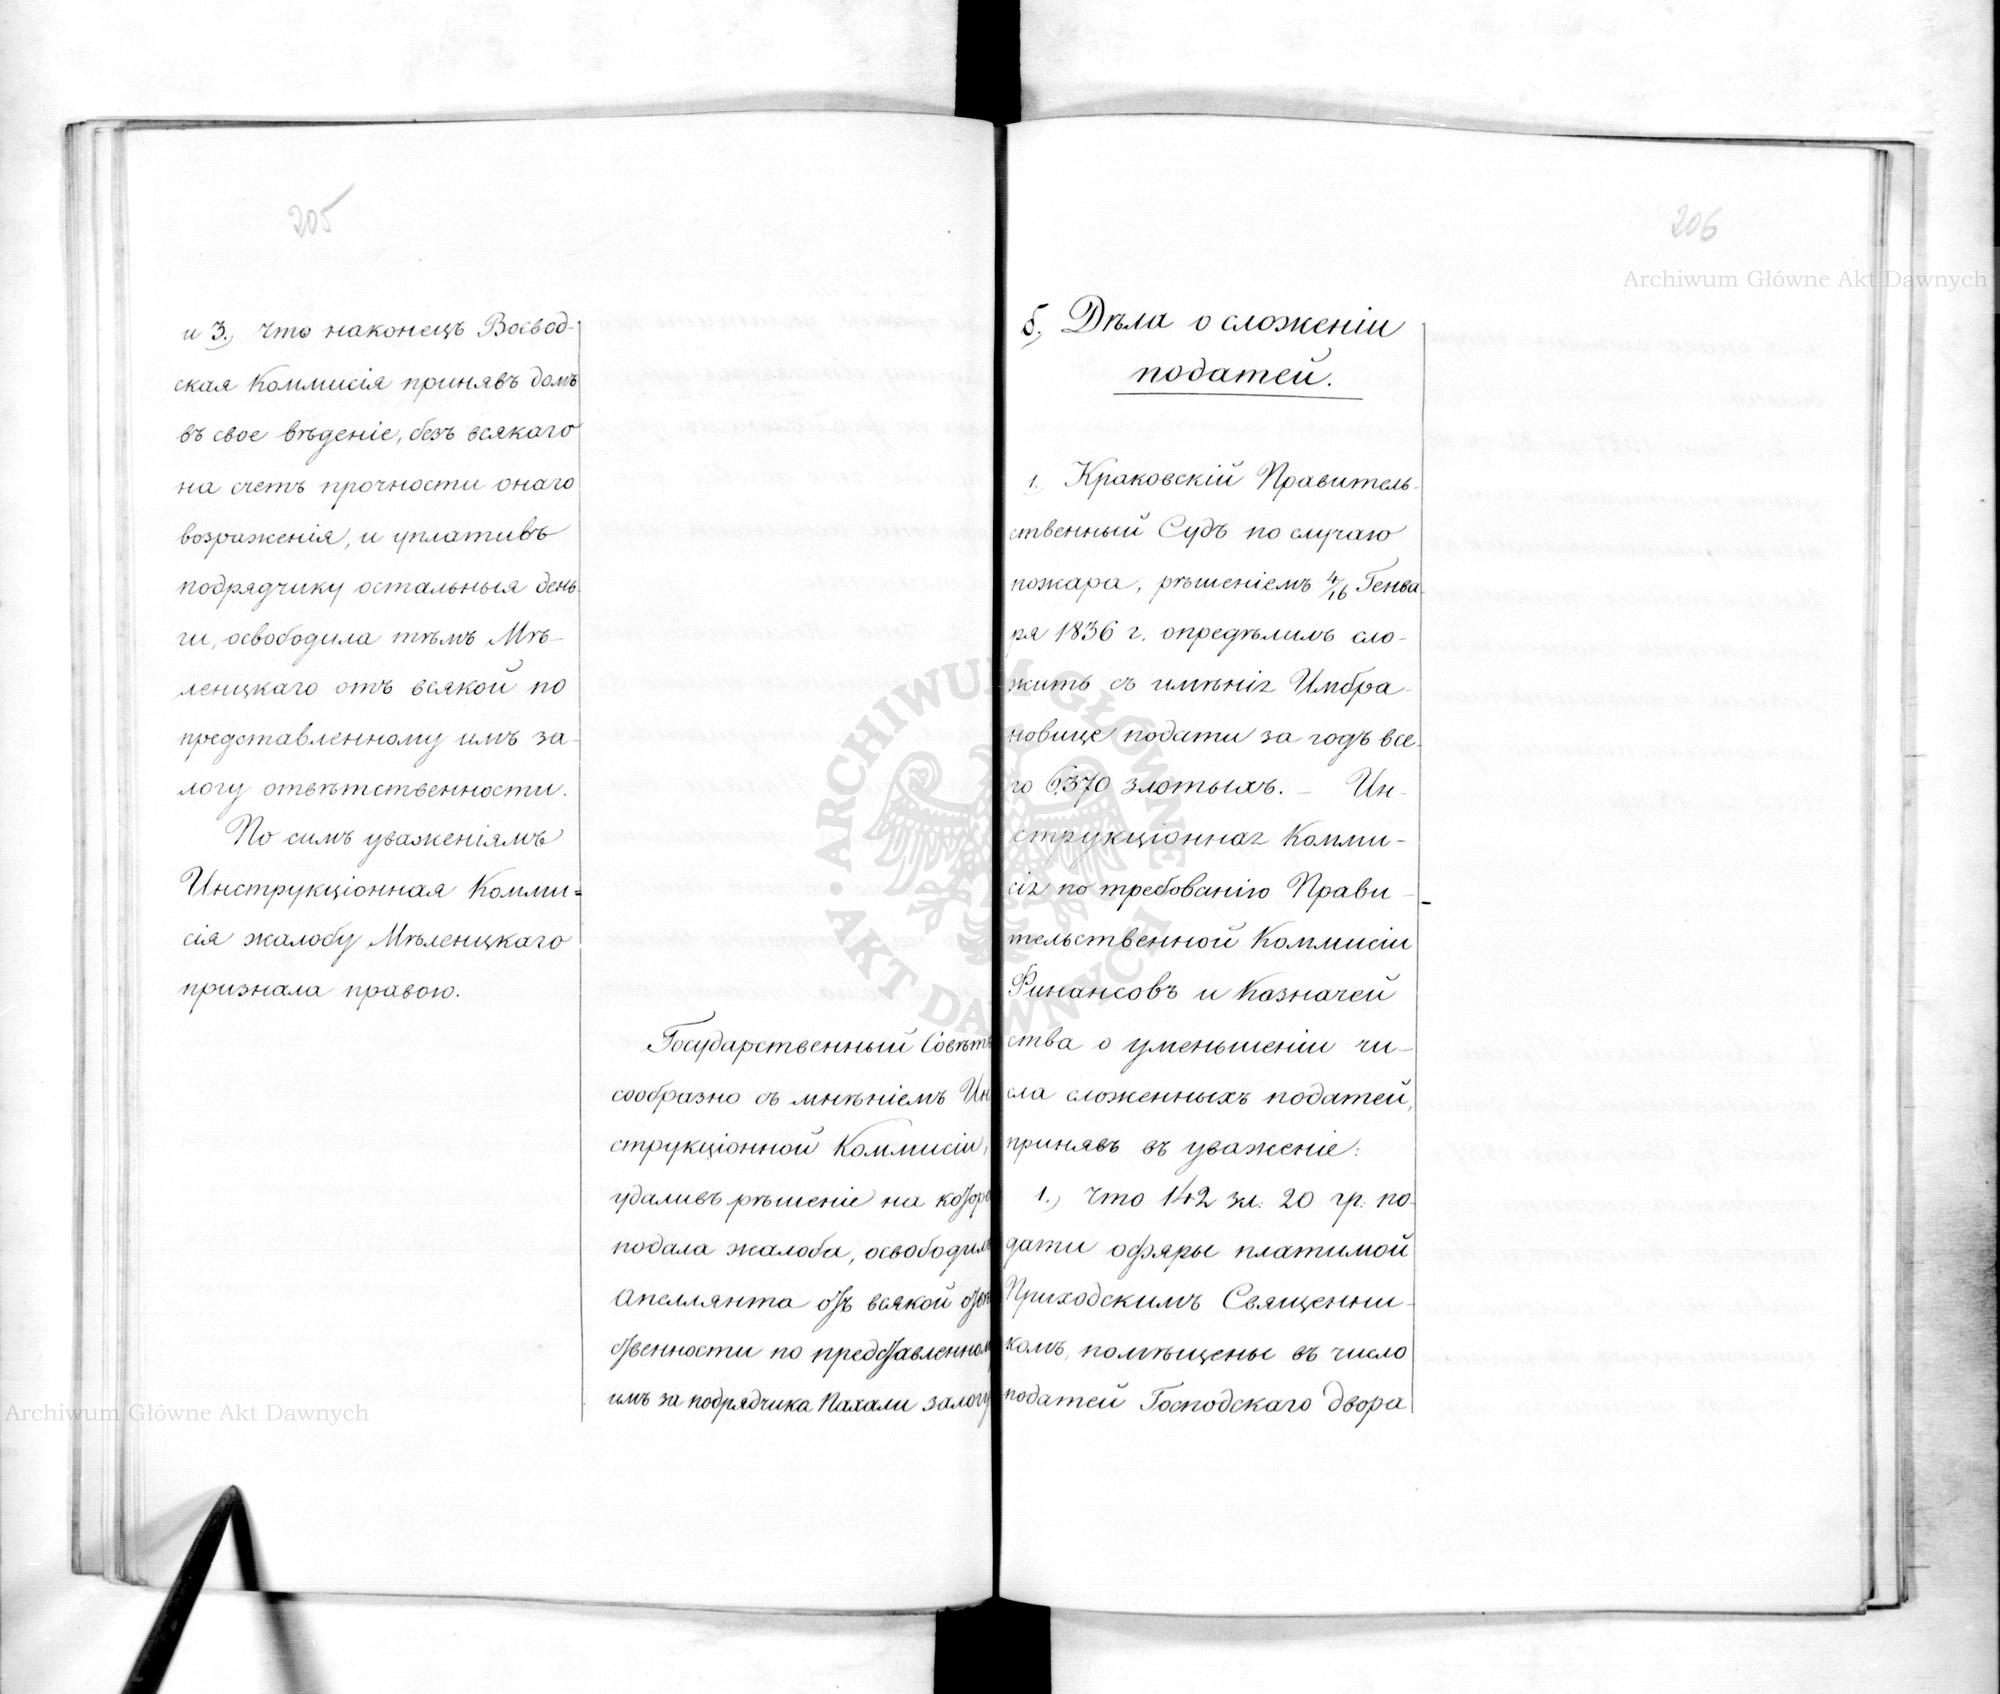 205
и 3., что наконецъ Воевод-
ская Коммисія принявъ домъ
въ свое вѣденіе, безъ всякаго
на счетъ прочности онаго
возраженія, и уплативъ
подрядчику остальныя день-
ги, освободила тѣмъ Мѣ-
леницкаго отъ всякой по
представленному имъ за-
логу отвѣтственности.
По симъ уваженіямъ
Инструкціонная Комми=
сія жалобу Мѣленицкаго
признала правою.
Государственный Совѣтъ
сообразно съ мнѣніемъ Ин
струкціонной Коммисіи,
удаливъ рѣшеніе на
подала жалоба, освободилъ
апеллянта отъ всякой
ственности по представленном
имъ за подрядчика Пахали залогу
206
б, Дѣла о сложеніи
податей.
1. Краковскій Правитель-
ственный Судъ по случаю
пожара, рѣшеніемъ 4/16 Генва-
ря 1836 г. опредѣлилъ сло-
жить съ имѣнія Имбра-
новице подати за годъ все-
го 6.370 злотыхъ. – Ин-
струкціонная Комми-
сія по требованію Прави-
тельственной Коммисіи
Финансовъ и Казначей
ства о уменьшеніи чи-
сла сложенныхъ податей,
принявъ въ уваженіе:
1., Что 142 зл: 20 гр: по-
дати офяры платимой
Приходскимъ Священни-
комъ, помѣщены въ число
податей Господскаго двора
Archiwum Główne Akt Dawnych
Archiwum Główne Akt Dawnych
ARCHIWUM GŁÓWNE • AKT DAWNYCH •